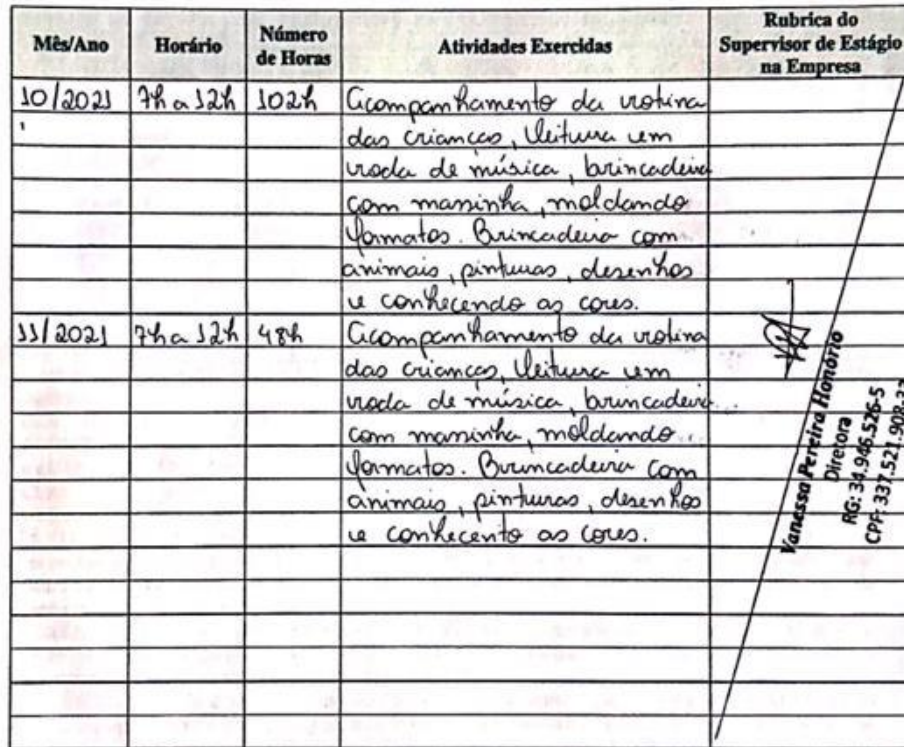 Mês/Ano Horário Número de Horas Atividades Exercidas Rubrica do Supervisor de Estágio na Empresa
10/2021 7h a 12h 102h Acompanhamento da rotina
das crianças, leitura em
roda de música, brincadeira
com massinha, moldando
formatos. Brincadeira com
animais, pinturas, desenhos
e conhecendo as cores.
11/2021 7h a 12h 48h Acompanhamento da rotina
das crianças, leitura em
roda de música, brincadeira
com massinha, moldando
formatos. Brincadeira com
animais, pinturas, desenhos
e conhecento as cores.
Vanessa Pereira Honório
Diretora
RG: 34.946.526-5
CPF: 337.521.908-37